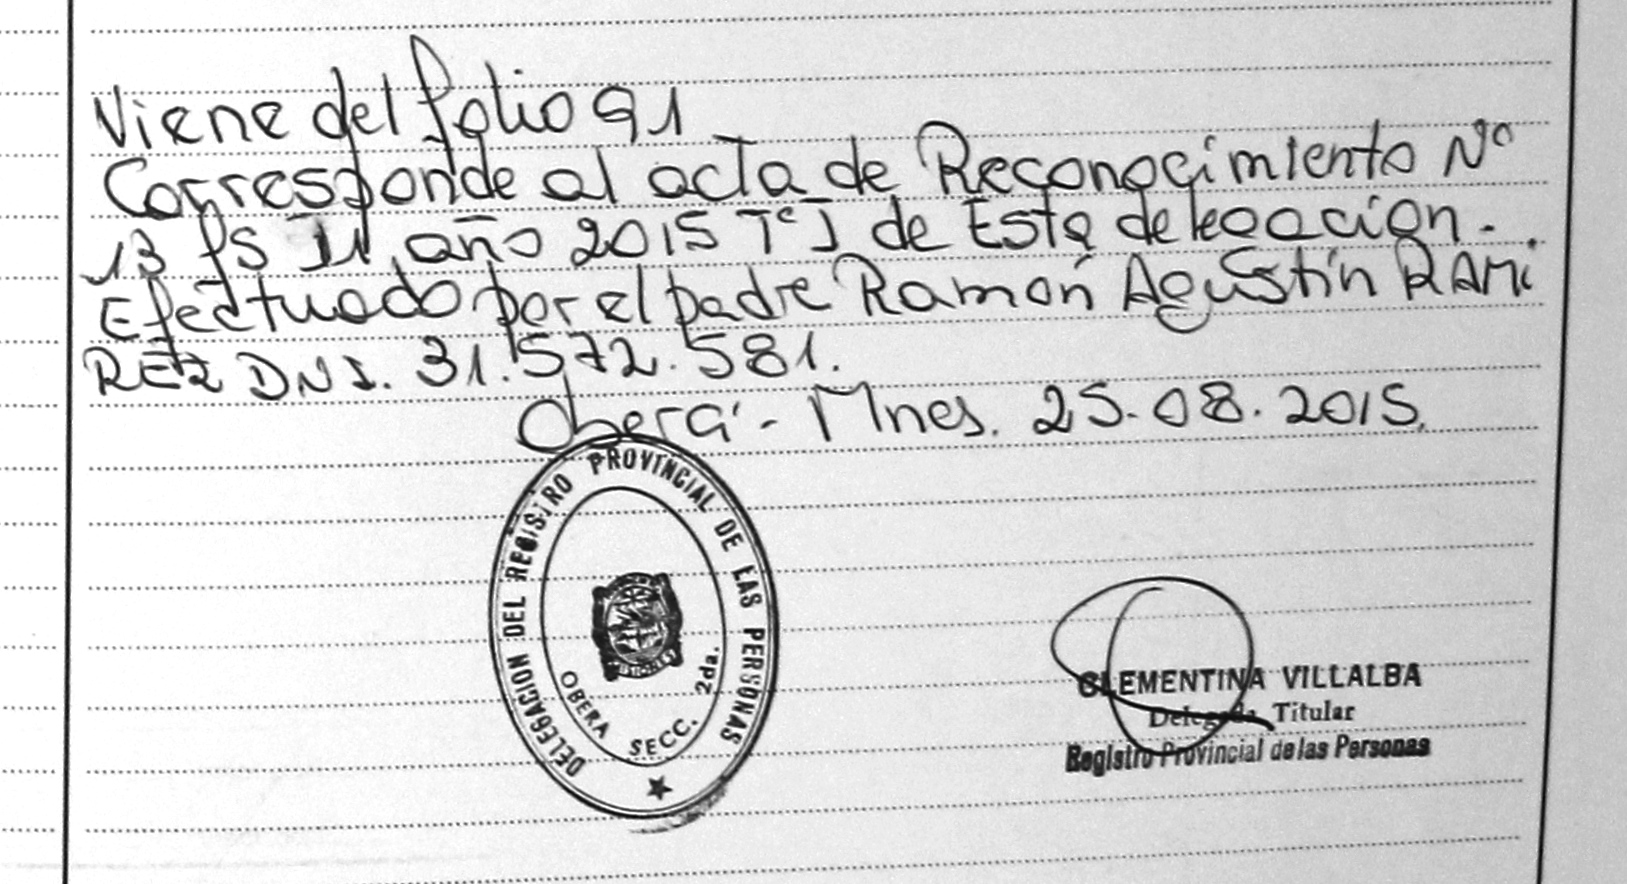 Viene del folio 91
Corresponde al acta de Reconocimiento Nº
13 fs 11, año 2015 Tº I de Esta delegación.
Efectuado por el padre Ramón Agustín RAMI
REZ DNI. 31.572.581.
Oberá - Mnes. 25.08.2015.
DELEGACION DEL REGISTRO PROVINCIAL DE LAS PERSONAS
OBERA SECC. 2da.
CLEMENTINA VILLALBA
Delegada Titular
Registro Provincial de las Personas